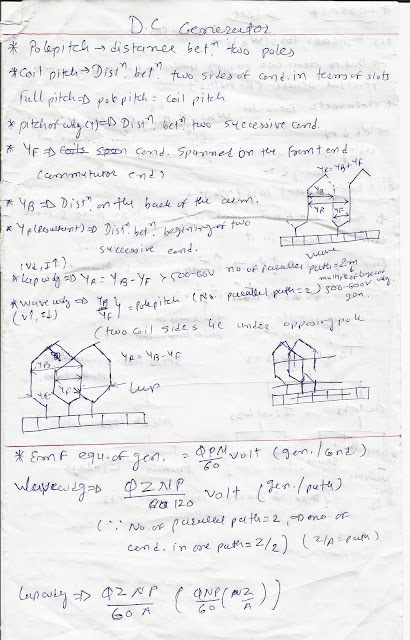 D.C. Generator
* Pole pitch → distance betⁿ two poles
* Coil pitch → Distⁿ betⁿ two sides of cond. in terms of slots.
full pitch ⇒ pole pitch = coil pitch
* pitch of wdg (Y) ⇒ Distⁿ betⁿ two successive cond.
* YF ⇒ cond. spanned on the front end
(commutator end)
YR = YB + YF
YB
YR
YF
wave
* YB ⇒ Distⁿ on the back of the arm.
* YR (Resultant) ⇒ Distⁿ betⁿ begening of two
successive cond.
(V↓, I↑)
* Lap wdg ⇒ YR = YB - YF > 500-600V no of parallel path = 2m
* wave wdg ⇒ YB = pole pitch (No. parallel path = 2) 500-600V
(V↑, I↓) YF gen.
(two coil sides lie under opposing pole
YB
YR = YB - YF
YR
YF
Lap
* Emf equ. of gen. = ΦPN/60 volt (gen./cond.)
Wave wdg ⇒ ΦZNP/120 volt (gen./path)
(∵ No of parallel path = 2, ⇒ no. of
cond. in one path = Z/2) (Z/A = path)
Lap wdg ⇒ ΦZNP/60A